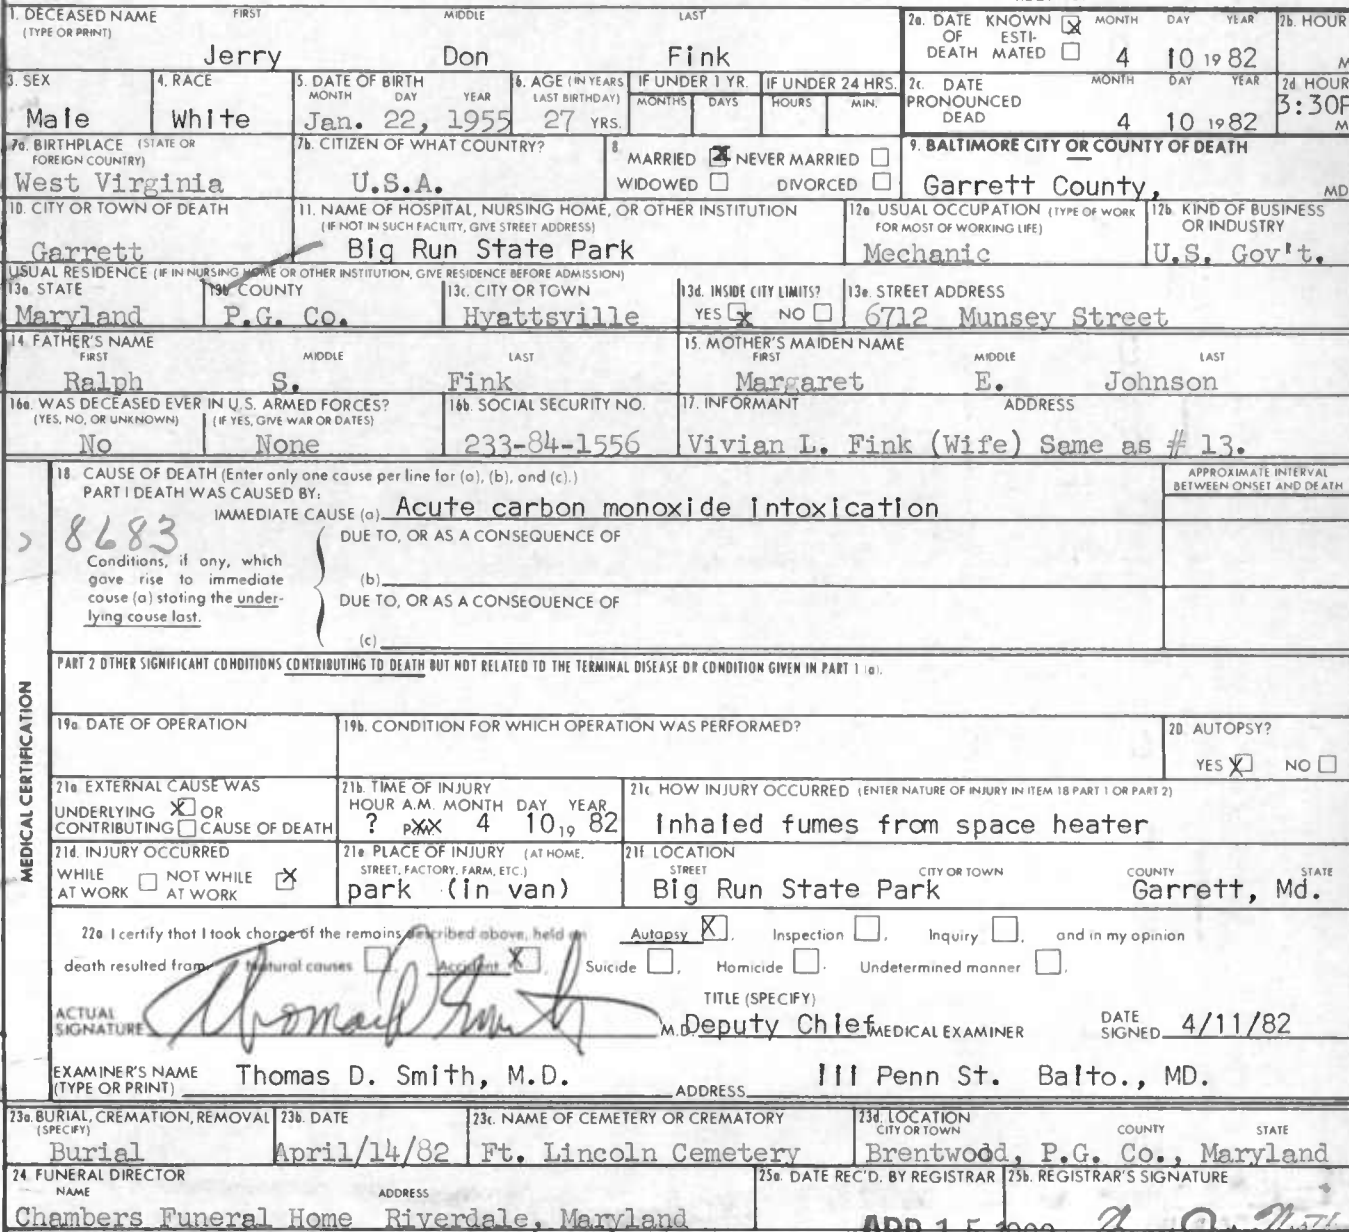 1. DECEASED NAME FIRST MIDDLE LAST
(TYPE OR PRINT)
Jerry Don Fink
2a. DATE OF DEATH KNOWN ☒ ESTIMATED ☐ MONTH DAY YEAR
4 10 19 82
2b. HOUR
M
3. SEX
Male
4. RACE
White
5. DATE OF BIRTH
MONTH DAY YEAR
Jan. 22, 1955
6. AGE (IN YEARS LAST BIRTHDAY)
27 YRS.
IF UNDER 1 YR.
MONTHS DAYS
IF UNDER 24 HRS.
HOURS MIN.
2c. DATE PRONOUNCED DEAD MONTH DAY YEAR
4 10 19 82
2d HOUR
3:30P
M
7a. BIRTHPLACE (STATE OR FOREIGN COUNTRY)
West Virginia
7b. CITIZEN OF WHAT COUNTRY?
U.S.A.
8 MARRIED ☒ NEVER MARRIED ☐
WIDOWED ☐ DIVORCED ☐
9. BALTIMORE CITY OR COUNTY OF DEATH
Garrett County, MD
10. CITY OR TOWN OF DEATH
Garrett
11. NAME OF HOSPITAL, NURSING HOME, OR OTHER INSTITUTION
(IF NOT IN SUCH FACILITY, GIVE STREET ADDRESS)
Big Run State Park
12a USUAL OCCUPATION (TYPE OF WORK FOR MOST OF WORKING LIFE)
Mechanic
12b. KIND OF BUSINESS OR INDUSTRY
U.S. Gov't.
USUAL RESIDENCE (IF IN NURSING HOME OR OTHER INSTITUTION, GIVE RESIDENCE BEFORE ADMISSION)
13a. STATE
Maryland
13b. COUNTY
P.G. Co.
13c. CITY OR TOWN
Hyattsville
13d. INSIDE CITY LIMITS?
YES ☒ NO ☐
13e. STREET ADDRESS
6712 Munsey Street
14. FATHER'S NAME
FIRST MIDDLE LAST
Ralph S. Fink
15. MOTHER'S MAIDEN NAME
FIRST MIDDLE LAST
Margaret E. Johnson
16a. WAS DECEASED EVER IN U.S. ARMED FORCES?
(YES, NO, OR UNKNOWN) (IF YES, GIVE WAR OR DATES)
No None
16b. SOCIAL SECURITY NO.
233-84-1556
17. INFORMANT ADDRESS
Vivian L. Fink (Wife) Same as # 13.
MEDICAL CERTIFICATION
18. CAUSE OF DEATH (Enter only one cause per line for (a), (b), and (c).)
PART I DEATH WAS CAUSED BY:
APPROXIMATE INTERVAL BETWEEN ONSET AND DEATH
IMMEDIATE CAUSE (a) Acute carbon monoxide intoxication
8683
DUE TO, OR AS A CONSEQUENCE OF
Conditions, if any, which
gave rise to immediate
cause (a) stating the under-
lying cause last.
(b)
DUE TO, OR AS A CONSEQUENCE OF
(c)
PART 2 OTHER SIGNIFICANT CONDITIONS CONTRIBUTING TO DEATH BUT NOT RELATED TO THE TERMINAL DISEASE OR CONDITION GIVEN IN PART 1 (a).
19a. DATE OF OPERATION
19b. CONDITION FOR WHICH OPERATION WAS PERFORMED?
20. AUTOPSY?
YES ☒ NO ☐
21a EXTERNAL CAUSE WAS
UNDERLYING ☒ OR
CONTRIBUTING ☐ CAUSE OF DEATH
21b. TIME OF INJURY
HOUR A.M. MONTH DAY YEAR
? 4 10 19 82
21c HOW INJURY OCCURRED (ENTER NATURE OF INJURY IN ITEM 18 PART 1 OR PART 2)
Inhaled fumes from space heater
21d. INJURY OCCURRED
WHILE AT WORK ☐ NOT WHILE AT WORK ☒
21e PLACE OF INJURY (AT HOME, STREET, FACTORY, FARM, ETC.)
park (in van)
21f LOCATION
STREET CITY OR TOWN COUNTY STATE
Big Run State Park Garrett, Md.
22a I certify that I took charge of the remains described above, held an Autopsy ☒, Inspection ☐, Inquiry ☐, and in my opinion
death resulted from Natural causes ☐, Accident ☒, Suicide ☐, Homicide ☐. Undetermined manner ☐.
ACTUAL SIGNATURE Thomas D. Smith M.D.
TITLE (SPECIFY)
Deputy Chief MEDICAL EXAMINER
DATE SIGNED 4/11/82
EXAMINER'S NAME (TYPE OR PRINT) Thomas D. Smith, M.D.
ADDRESS 111 Penn St. Balto., MD.
23a. BURIAL, CREMATION, REMOVAL (SPECIFY)
Burial
23b. DATE
April/14/82
23c. NAME OF CEMETERY OR CREMATORY
Ft. Lincoln Cemetery
23d. LOCATION
CITY OR TOWN COUNTY STATE
Brentwood, P.G. Co., Maryland
24. FUNERAL DIRECTOR
NAME ADDRESS
Chambers Funeral Home Riverdale, Maryland
25a. DATE REC'D. BY REGISTRAR
APR 15
25b. REGISTRAR'S SIGNATURE